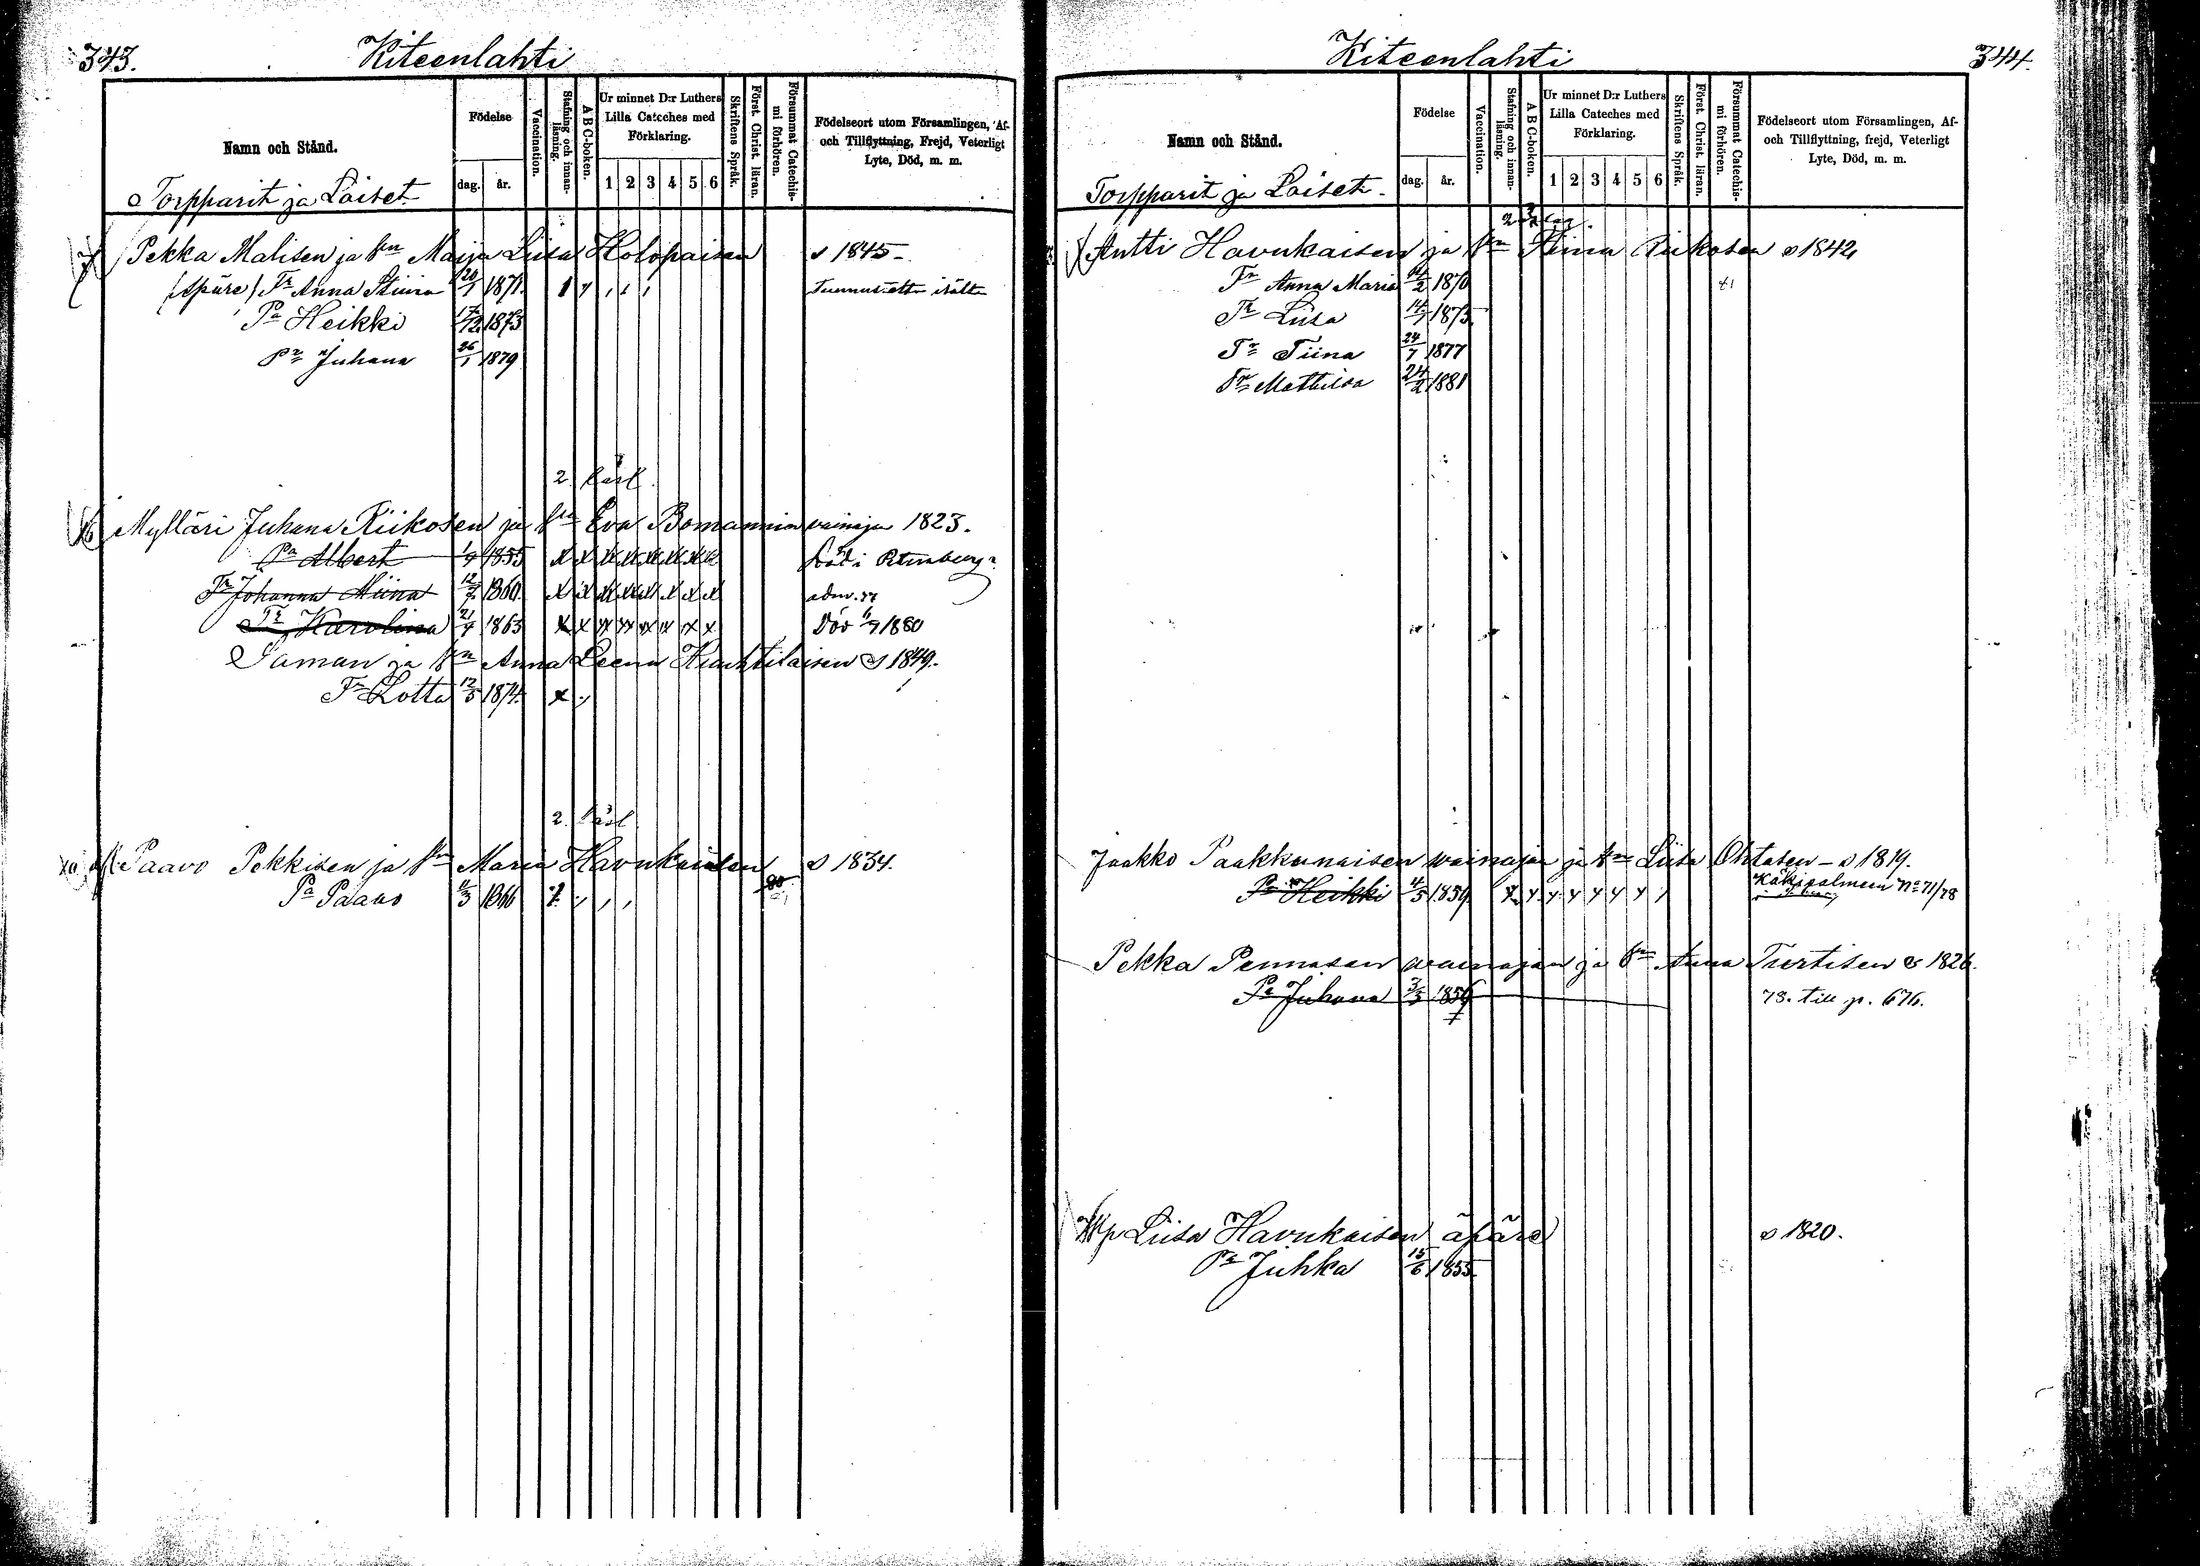 343.
Kiteenlahti
Namn och Stånd.
Födelse
dag.
år.
Vaccination.
Stafning och innan-läsning.
A B C-boken.
Ur minnet D:r Luthers Lilla Cateches med Förklaring.
1 2 3 4 5 6
Skriftens Språk.
Först. Christ. läran.
Försummat Catechis-mi förhören.
Födelseort utom Församlingen, Af-
och Tillflyttning, Frejd, Veterligt
Lyte, Död, m. m.
Torpparit ja Loiset
Pekka Malisen ja Maija Liisa Holopaisen s 1845
Tr Anna Stiina 20/1 1871.
Pa Heikki 17/12 1873
Pa Juhana 26/1 1879
2.
Mylläri Juhana Riikosen ja Eva Bomannin vainaja 1823.
Pa Albert 1855
Tr Johanna Miina 1860
Tr Karolina 21/4 1863 Döv 1880
Saman ja Anna Leena s 1849.
Tr Lotta 12/5 1874.
2.
Paavo Pekkisen ja Maria Havukaisen s 1834.
Pa Paavo 1866
Kiteenlahti
344.
Namn och Stånd.
Födelse
dag.
år.
Vaccination.
Stafning och innan-läsning.
A B C-boken.
Ur minnet D:r Luthers Lilla Cateches med Förklaring.
1 2 3 4 5 6
Skriftens Språk.
Först. Christ. läran.
Försummat Catechis-mi förhören.
Födelseort utom Församlingen, Af-
och Tillflyttning, frejd, Veterligt
Lyte, Död, m. m.
Torpparit ja Loiset.
Antti Havukaisen ja Riikosen s 1842
Tr Anna Maria 1870
Tr Liisa 1875
Tr Tiina 24/7 1877
Tr Mathilda 24/2 1881
Jaakko Paakkunaisen vainajan ja Liisa Ohtasen - s 1819.
Pa Heikki 4/5 1859 No 71/78
Pekka Pennasen vainajan ja Anna Turtisen s 1826.
Pa Juhana 3/3 1859 78. till p. 676.
Liisa Havukaisen äpärä s 1820.
Pa Juhka 15/6 1855